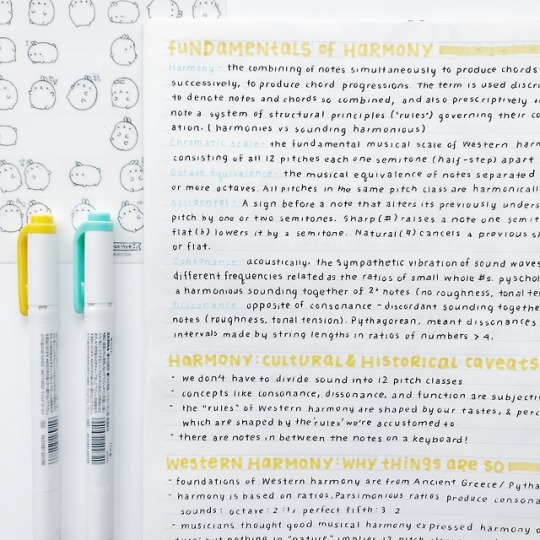 FUNDAMENTALS OF HARMONY
Harmony - the combining of notes simultaneously to produce chords
successively, to produce chord progressions. The term is used discri
to denote notes and chords so combined, and also prescriptively to
note a system of structural principles ("rules") governing their co
ation. (harmonies vs sounding harmonious)
Chromatic scale - the fundamental musical scale of Western harm
consisting of all 12 pitches each one semitone (half-step) apart
Octave equivalence - the musical equivalence of notes separated
or more octaves. All pitches in the same pitch class are harmonicall
Accidental - A sign before a note that alters its previously unders
pitch by one or two semitones. Sharp (#) raises a note one semit
flat (b) lowers it by a semitone. Natural (♮) cancels a previous sh
or flat.
Consonance: acoustically: the sympathetic vibration of sound waves
different frequencies related as the ratios of small whole #s. pyschol
a harmonious sounding together of 2+ notes (no roughness, tonal ten
Dissonance: opposite of consonance - discordant sounding togethe
notes (roughness, tonal tension). Pythagorean, meant dissonances
intervals made by string lengths in ratios of numbers > 4.
HARMONY: CULTURAL & HISTORICAL CAVEATS
- we don't have to divide sound into 12 pitch classes
- concepts like consonance, dissonance, and function are subjectiv
- the "rules" of Western harmony are shaped by our tastes, & perc
which are shaped by the 'rules' we're accustomed to
- there are notes in between the notes on a keyboard!
WESTERN HARMONY: WHY THINGS ARE SO
- foundations of Western harmony are from Ancient Greece / Pytha
- harmony is based on ratios. Parsimonious ratios produce consona
sounds: octave: 2:1, perfect fifth: 3:2
- musicians thought good musical harmony expressed harmony o